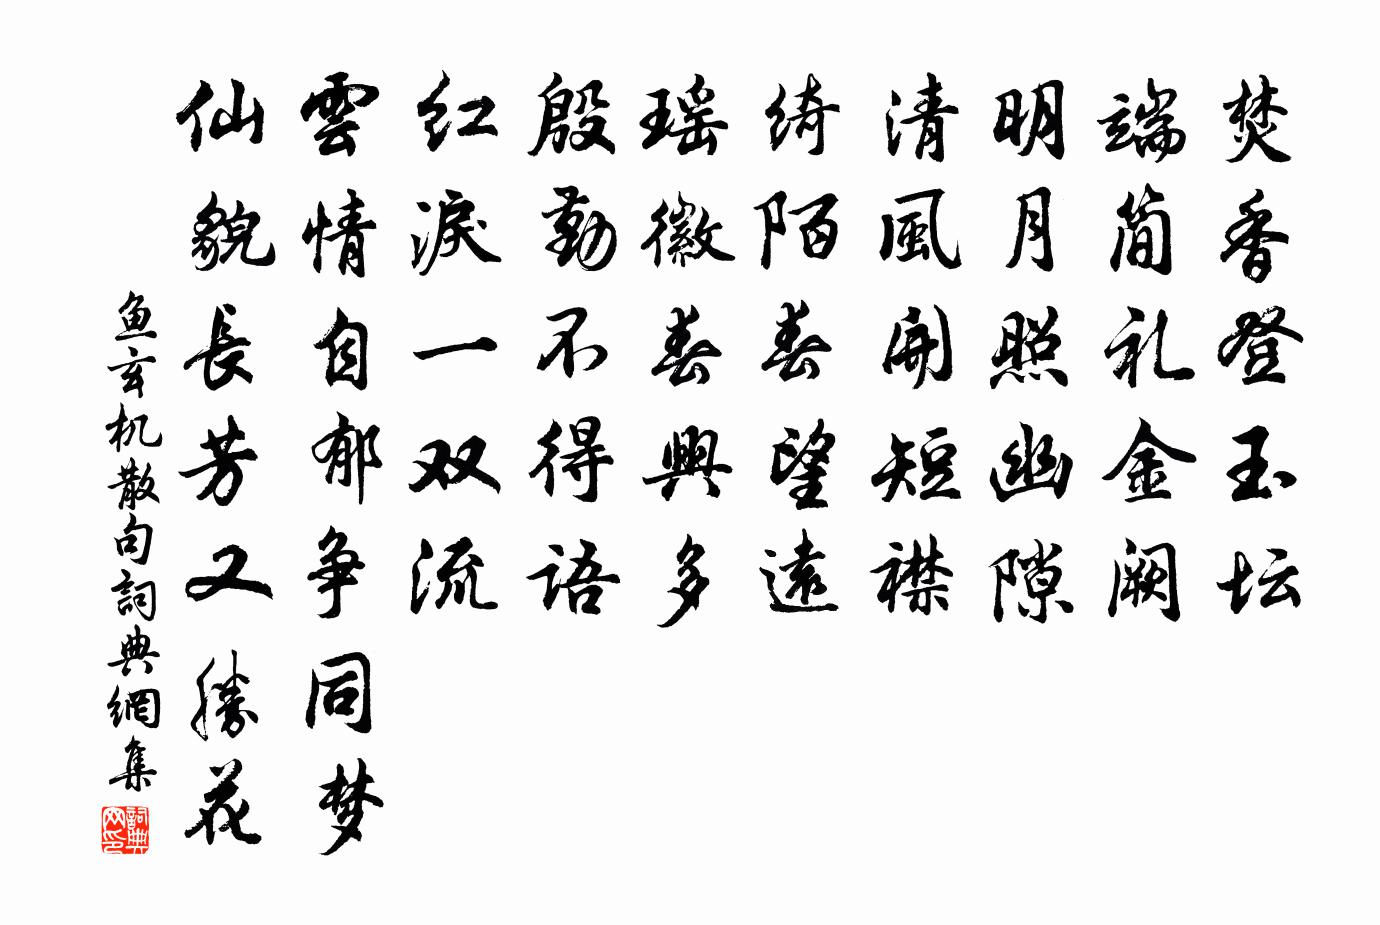 焚香登玉坛
端简礼金阙
明月照幽隙
清風開短襟
绮陌春望遠
瑶徽春興多
殷勤不得语
红淚一双流
雲情自郁争同梦
仙貌長芳又勝花
鱼玄机散句詞典網集
詞典网印